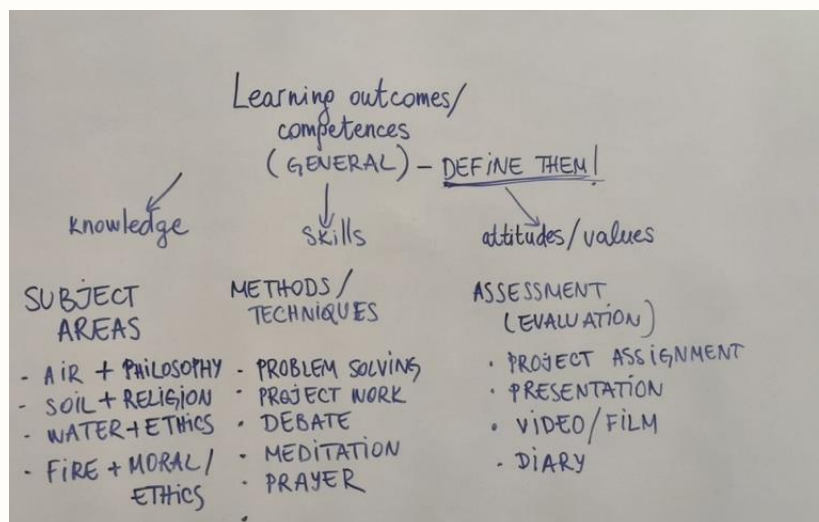 Learning outcomes/
competences
(GENERAL) - DEFINE THEM!
knowledge
skills
attitudes/values
SUBJECT
AREAS
- AIR + PHILOSOPHY
- SOIL + RELIGION
- WATER + ETHICS
- FIRE + MORAL/
ETHICS
METHODS/
TECHNIQUES
· PROBLEM SOLVING
· PROJECT WORK
· DEBATE
· MEDITATION
· PRAYER
·
ASSESSMENT
(EVALUATION)
· PROJECT ASSIGNMENT
· PRESENTATION
· VIDEO/FILM
· DIARY